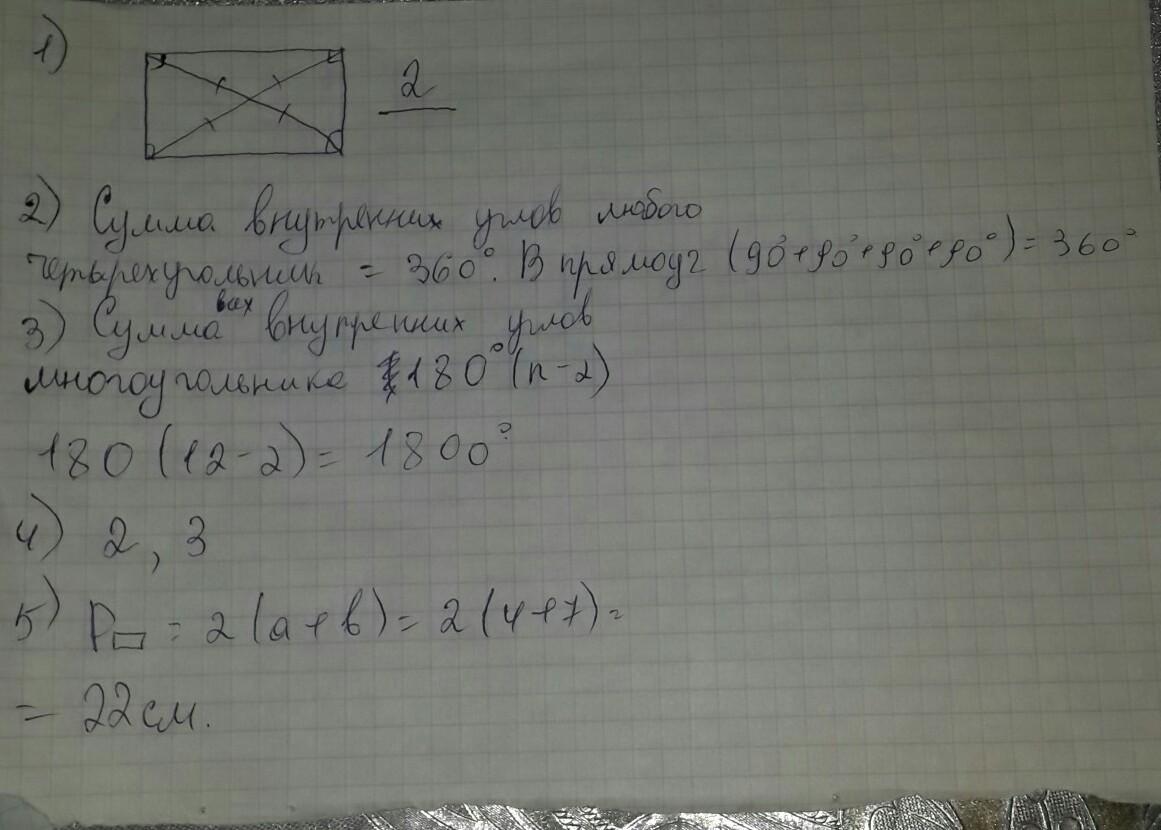 1)
2
2) Сумма внутренних углов любого
четырехугольник = 360°. В прямоуг (90°+90°+90°+90°) = 360°
3) Сумма всех внутренних углов
многоугольника 180°(n-2)
180 (12-2) = 1800°
4) 2, 3
5) P▭ = 2(a+b) = 2(4+7) =
= 22 см.